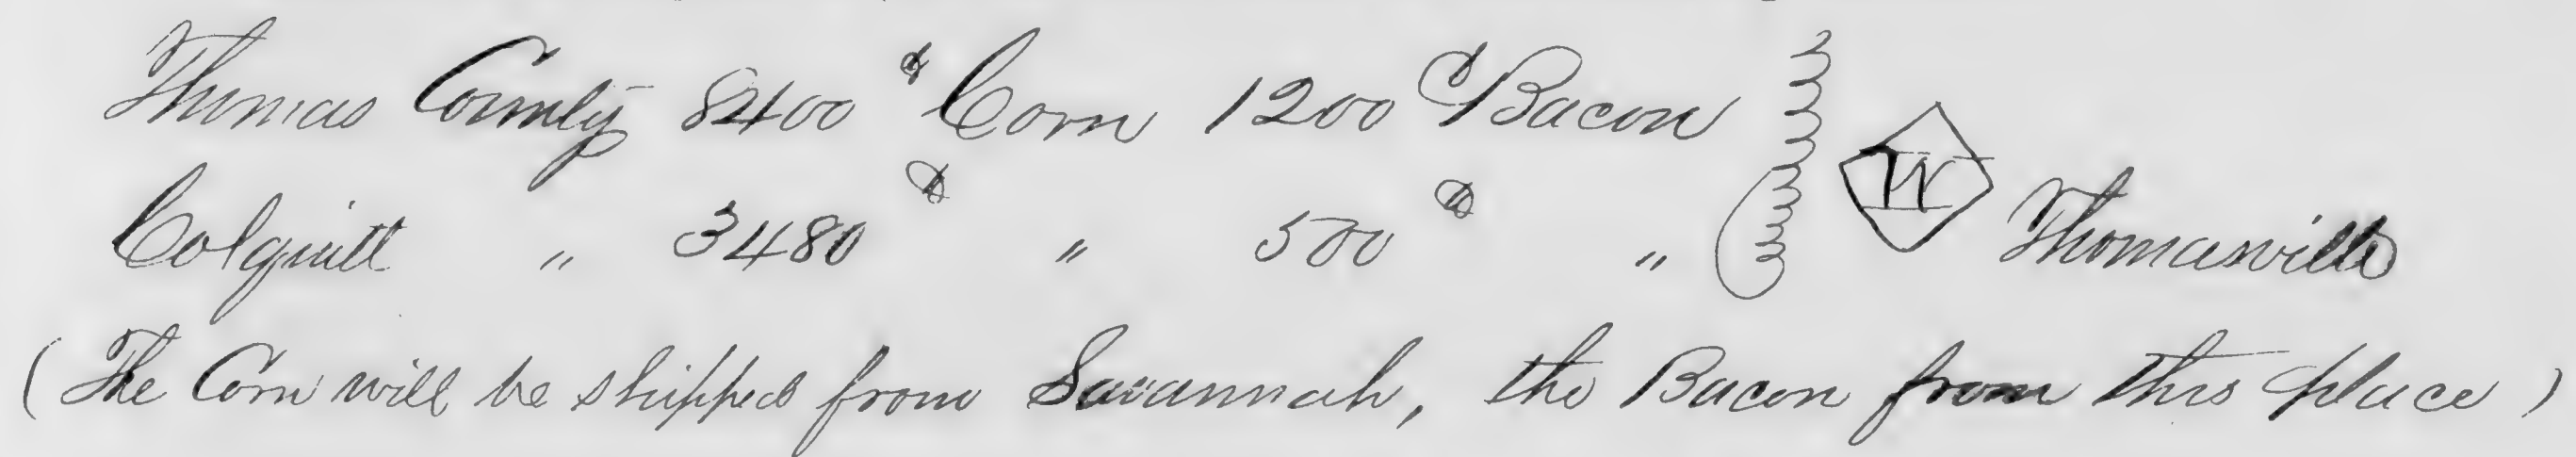 Thomas County 8400 ℔ Corn 1200 ℔ Bacon
Colquitt " 3480 ℔ " 500 ℔ " W Thomasville
(The Corn will be shipped from Savannah, the Bacon from this place)